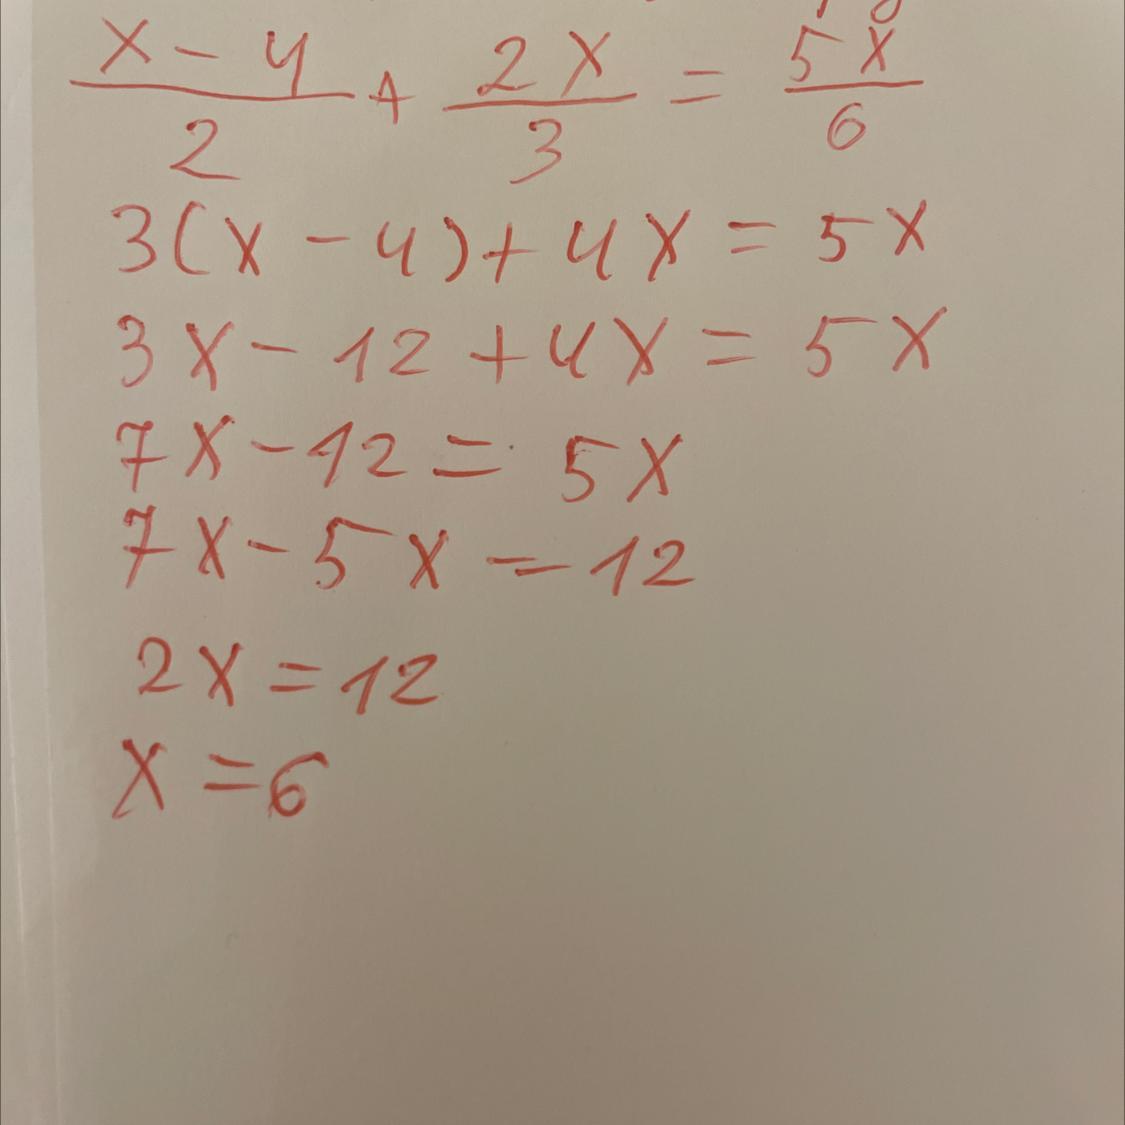 x - 4 / 2 + 2x / 3 = 5x / 6
3(x - 4) + 4x = 5x
3x - 12 + 4x = 5x
7x - 12 = 5x
7x - 5x = 12
2x = 12
x = 6